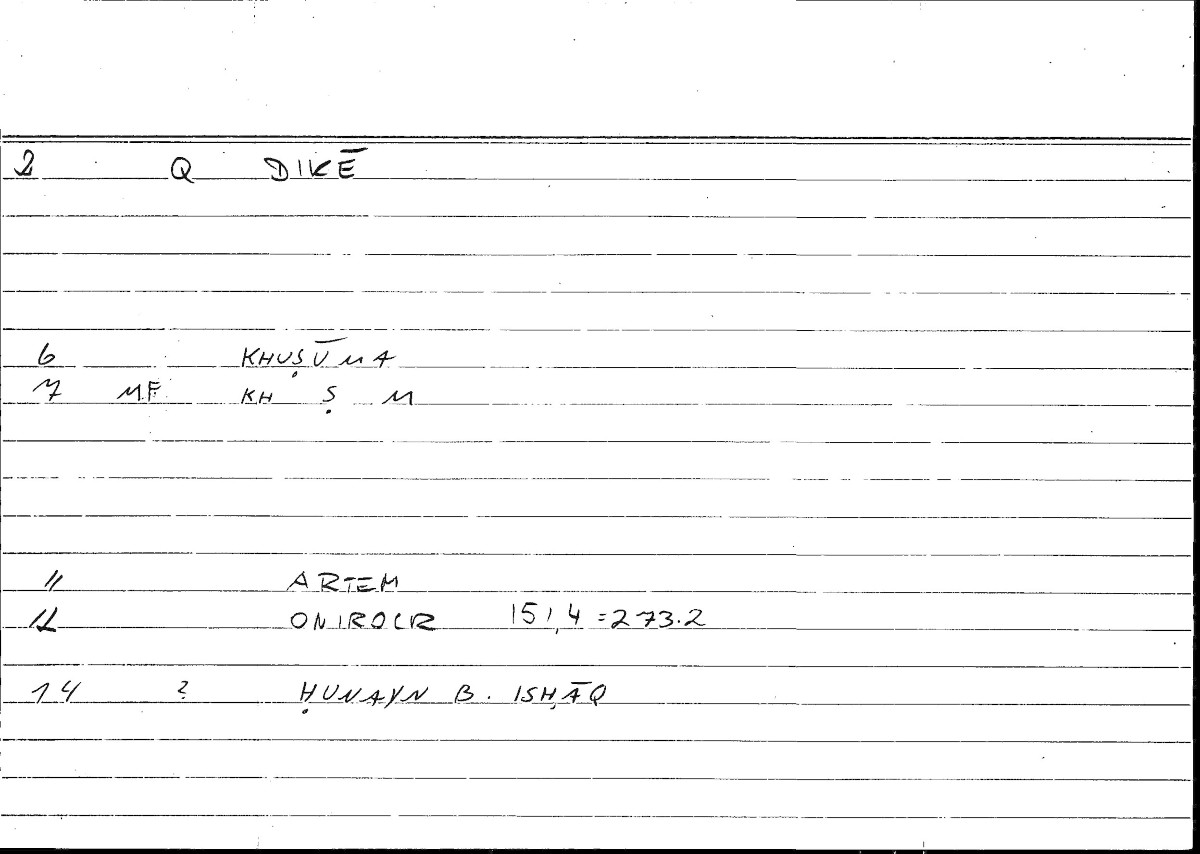 2 Q DIKĒ
6 KHUṢŪMA
7 MF KH Ṣ M
11 ARTEM
12 ONIROCR 151,4 = 273.2
14 ? ḤUNAYN B. ISḤĀQ